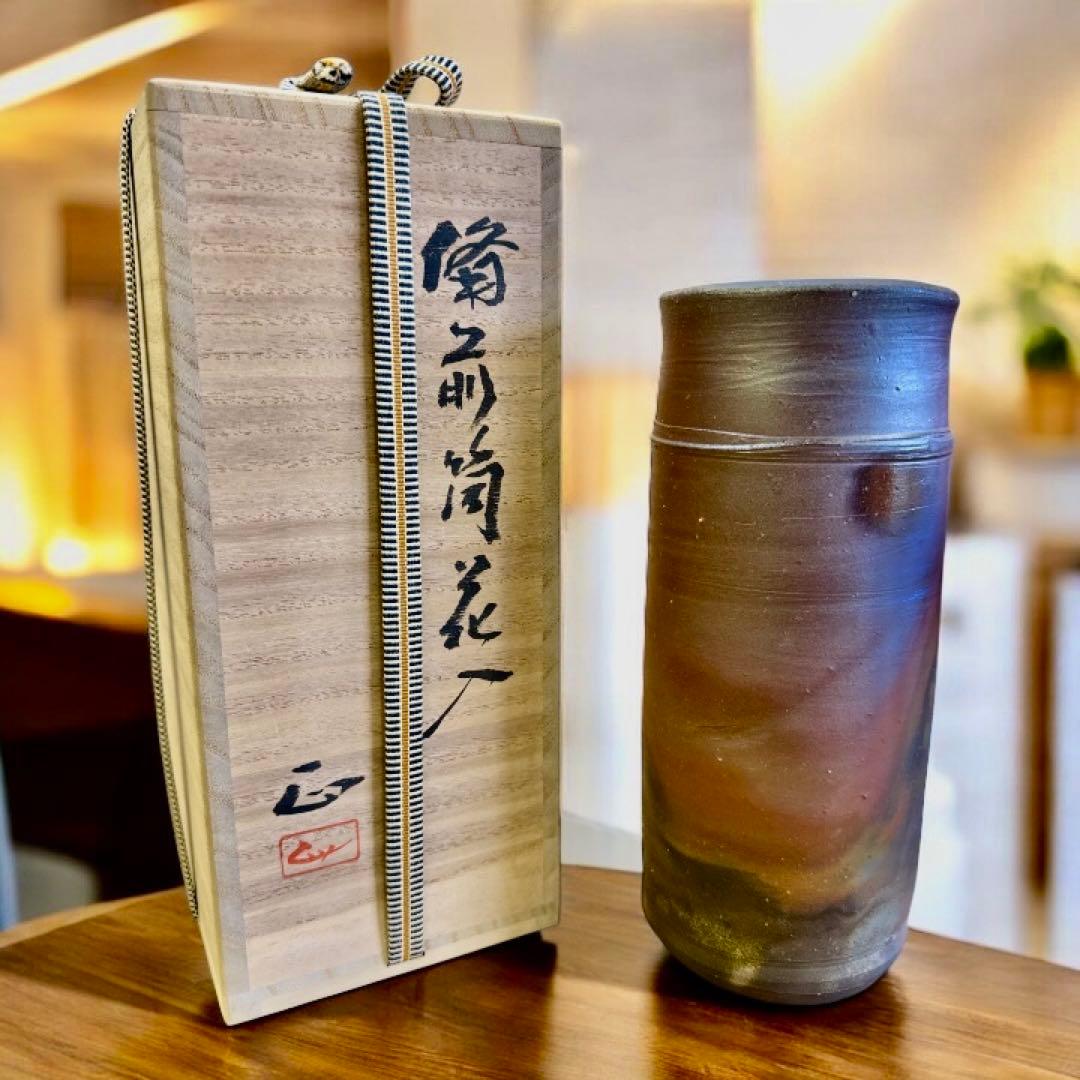 備前筒花入
正
正